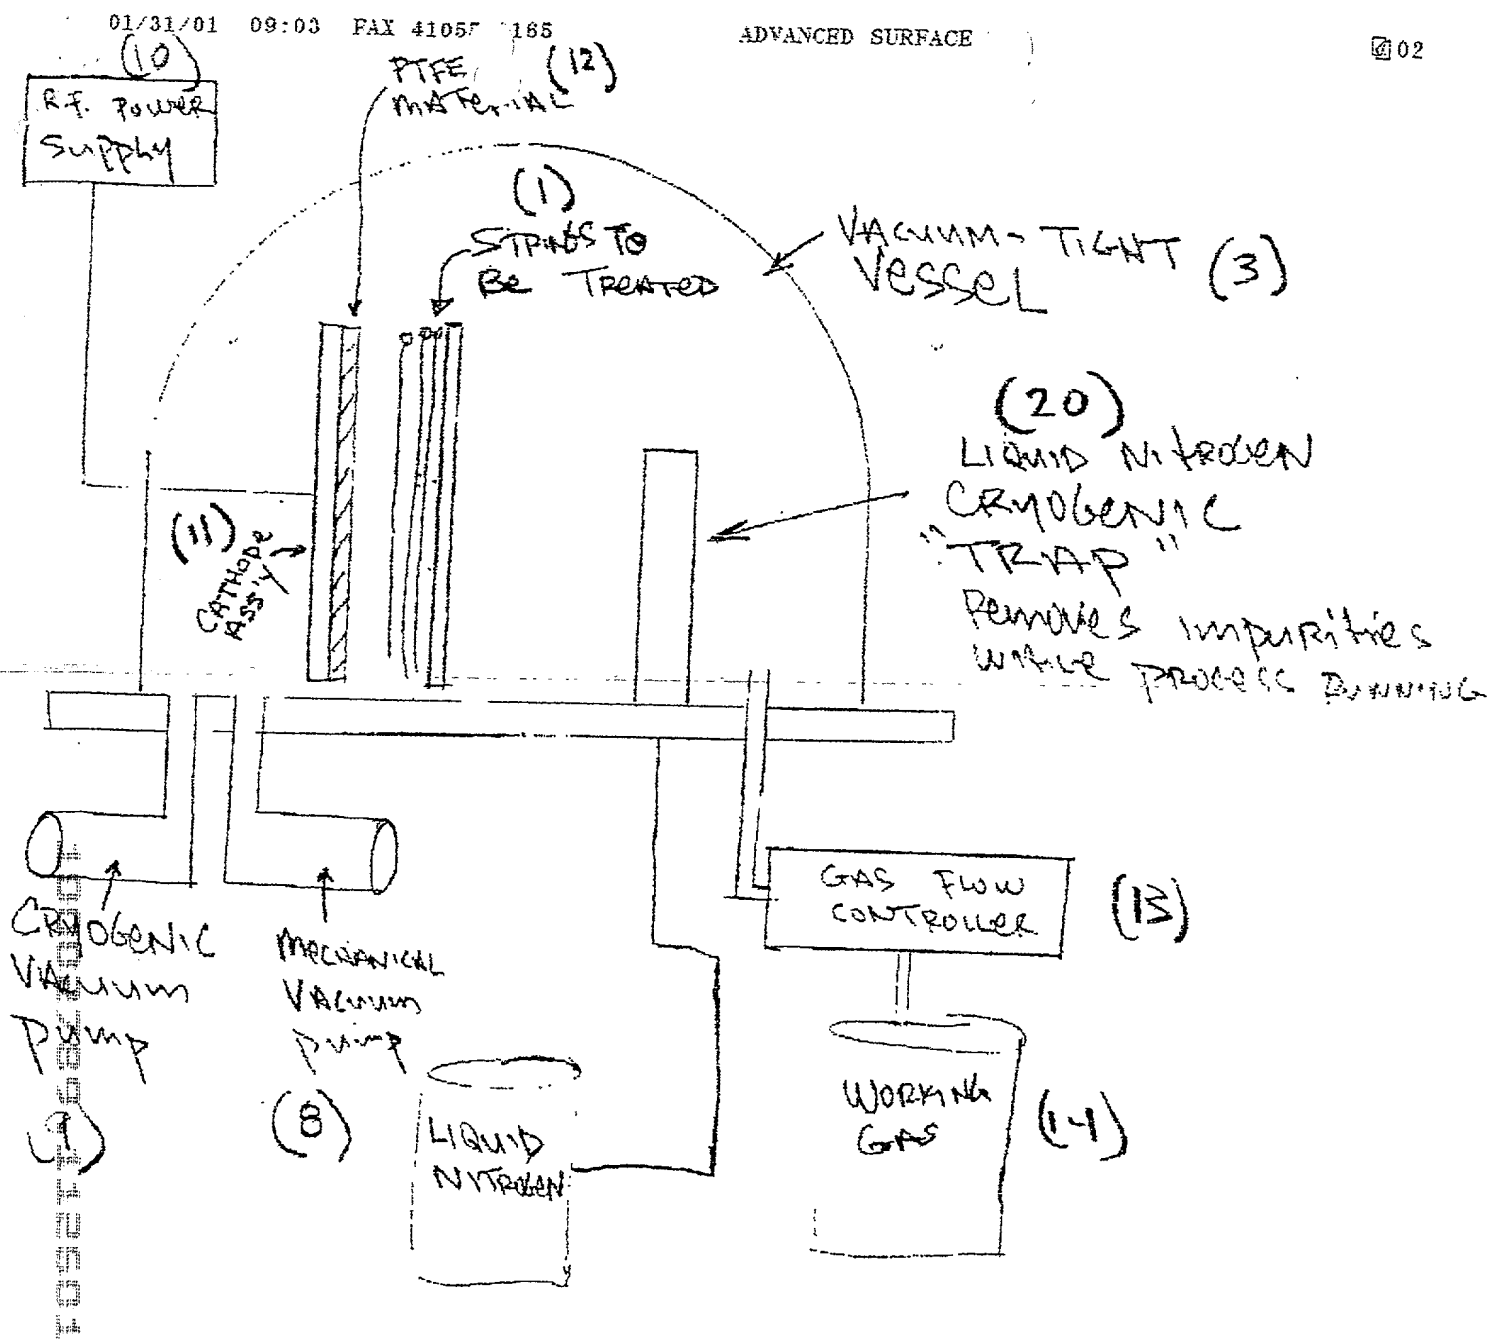 01/31/01 09:03 FAX 4105 165 ADVANCED SURFACE 02
(10)
R.F. POWER
SUPPLY
PTFE
MATERIAL
(12)
(1)
STRINGS TO
BE TREATED
VACUUM-TIGHT
VESSEL
(3)
(20)
LIQUID NITROGEN
CRYOGENIC
"TRAP"
REMOVES IMPURITIES
WHILE PROCESS RUNNING
(11)
CATHODE
ASS'Y
GAS FLOW
CONTROLLER
(13)
CRYOGENIC
VACUUM
PUMP
(9)
MECHANICAL
VACUUM
PUMP
(8)
LIQUID
NITROGEN
WORKING
GAS
(14)